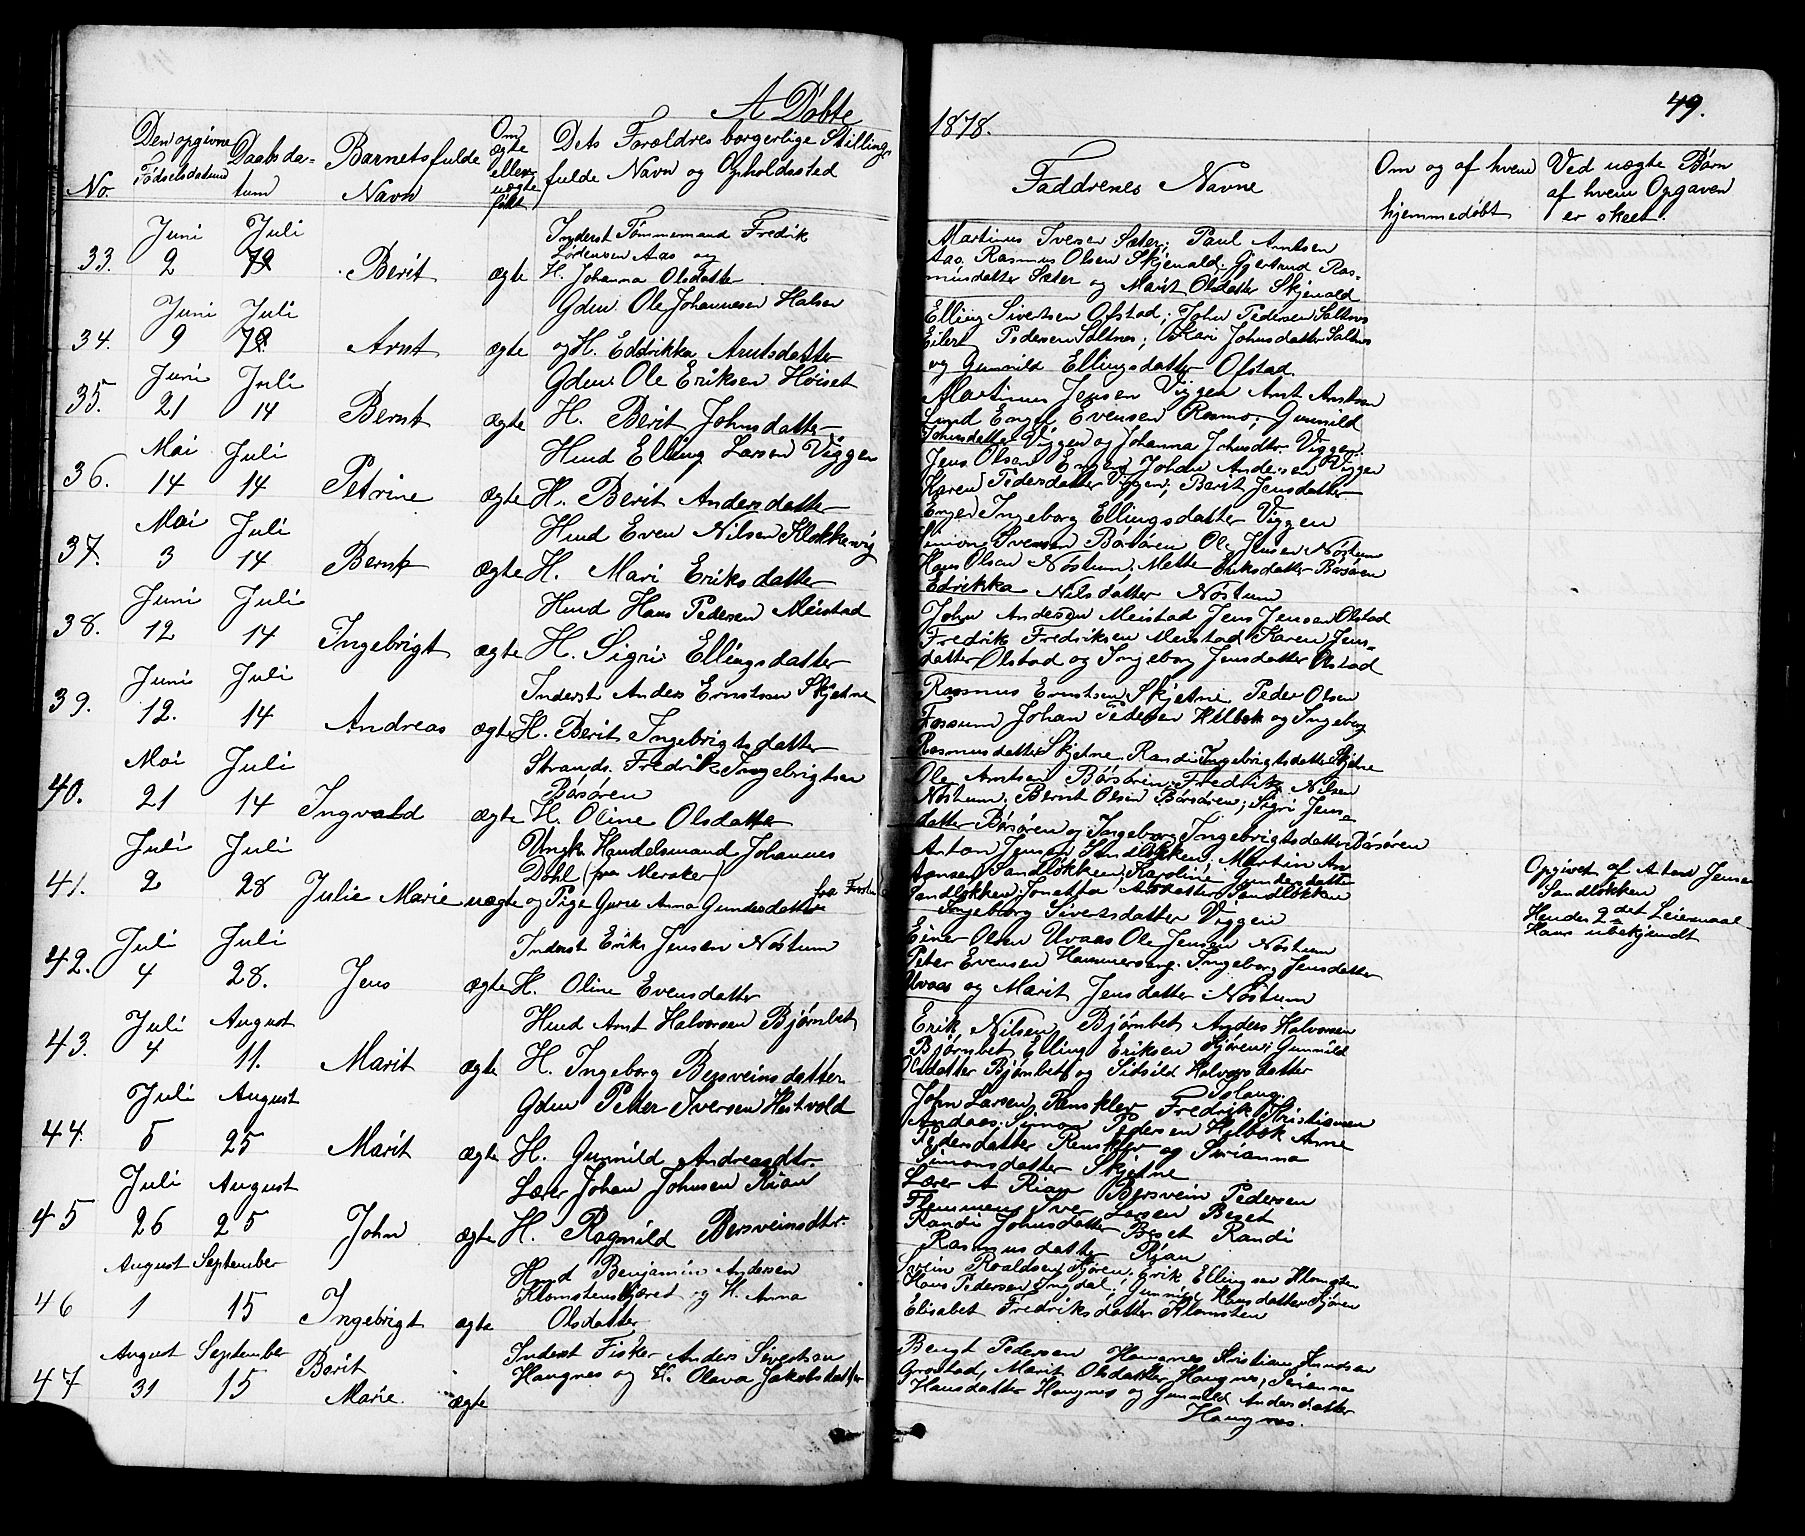 A Døbte
1878.
49.
No.
Den opgivne Fødselsdatum
Daabsdatum
Barnets fulde Navn
Om ægte eller uægte født
Dets Forældres borgerlige Stilling, fulde Navn og Opholdssted
Faddrenes Navne
Om og af hvem hjemmedøbt
Ved uægte Børn af hvem Opgaven er skeet.
33.
Juni 2
Juli
Berit
ægte
Inderst Tømmermand Fredrik
Sørensen Aas og
H. Johanna Olsdatter
Martinus Iversen Sæter; Paul Arntsen
Aas. Rasmus Olsen Skjenald. Gjertrud Ras-
musdatter Sæter og Marit Olsdatter Skjenald
34.
Juni 9
Juli
Arnt
ægte
Gdm. Ole Johannesen Halsen
og H. Eddrikka Arntsdatter
Elling Sivertsen Ofstad; John Pedersen Saltnes
Eilert Pedersen Saltnes; Kari Johnsdatter Saltnes
og Gunnild Ellingsdatter Ofstad.
35.
Juni 21
Juli 14
Bernt
ægte
Gdm. Ole Eriksen Høiset
H. Berit Johnsdatter
Martinus Jensen Viggen Arnt Arntsen
Lund Engel Evensen Rosmo; Gunnild
Johnsdatter Viggen og Johanna Johnsdtr. Viggen.
36.
Mai 14
Juli 14
Petrine
ægte
Hmd Elling Larsen Viggen
H. Berit Andersdatter
Jens Olsen Engen Johan Andersen Viggen
Karen Pedersdatter Viggen; Berit Jensdatter
Engen Ingeborg Ellingsdatter Viggen
37.
Mai 3
Juli 14
Bernt
ægte
Hmd Even Nilsen Klokkervig
H. Mari Eriksdatter
Simon Svensen Børsøren Ole Jensen Nøstum
Hans Olsen Nøstum, Mette Eriksdatter Børsøren
Edrikka Nilsdatter Nøstum
38.
Juni 12
Juli 14
Ingebrigt
ægte
Hmd Hans Pedersen Meistad
H. Sigri Ellingsdatter
John Andersen Meistad Jens Jensen Olstad
Fredrik Fredriksen Meistad Karen Jens-
datter Olstad og Ingeborg Jensdatter Olstad
39.
Juni 12.
Juli 14
Andreas
ægte
Inderst Anders Erntsen Skjetne
H. Berit Ingebrigtsdatter
Rasmus Erntsen Skjetne Peder Olsen
Fossum Johan Pedersen Helbek og Ingeborg
Rasmusdatter Skjetne Randi Ingebrigtsdatter Skjetne
40.
Mai 21
Juli 14
Ingvald
ægte
Strands. Fredrik Ingebrigtsen
Børsøren
H. Oline Olsdatter
Ole Arntsen Børsøren; Fredrik Nilsen
Nøstum; Bernt Olsen Børsøren; Sigri Jens-
datter Børsøren og Ingeborg Ingebrigtsdatter Børsøren
41.
Juli 2
Juli 28
Julie Marie
uægte
Ungk. Handelsmand Johannes
Dahl (fra Meraker)
og Pige Gurie Anna Gundersdatter fra
Anton Jensen Sandløkken; Martin
Sandløkken; Karoline Gundersdatter
Sandløkken; Sandløkken
Ingeborg Sivertsdatter Viggen
Opgivet af Anton Jensen
Sandløkken
Hendes 2det Leiermaal
Hans ubekjendt
42.
Juli 4
Juli 28.
Jens
ægte
Inderst Erik Jensen Nøstum
H. Oline Evensdatter
Einer Olsen Uvaas Ole Jensen Nøstum
Peter Evensen Hammerseng. Ingeborg Jensdatter
Uvaas og Marit Jensdatter Nøstum
43.
Juli 4
August 11.
Marit
ægte
Hmd Arnt Halvorsen Bjørnbet
H. Ingeborg Bersveinsdatter
Erik Nilsen Bjørnbet Anders Halvorsen
Bjørnbet Elling Eriksen Sjøren; Gunnild
Olsdatter Bjørnbet og Sidsild Halvorsdatter
44.
Juli 5
August 25
Marit
ægte
Gdm Peter Iversen Hestvold
H. Gunnild Andreasdtr.
John Larsen Rensklev Fredrik Kristiansen
Simon Pedersen Helbek Anne
Pedersdatter Rensklev og Serianna
Simonsdatter Skjetne
45
Juli 26
August 25
John
ægte
Lærer Johan Johnsen Rian
H. Ragnild Bersveinsdtr.
Lærer A Rian Bersvein Pedersen
Flemmen Iver Larsen Beset
Randi Johnsdatter Beset Randi
Rasmusdatter Rian
46
August 1
September 15
Ingebrigt
ægte
Hmd Benjamin Andersen
Klomstenskjæret og H. Anna
Olsdatter
Svein Roaldsen Sjøren; Erik Ellingsen Klomsten
Hans Pedersen Ingdal; Gunnild Hansdatter Sjøren
Elisabet Fredriksdatter Klomsten
47
August 31
September 15
Berit
Marie.
ægte
Inderst Fisker Anders Sivertsen
Haugnes og H. Olava Jakobsdatter
Bengt Pedersen Haugnes Kristian Knudsen
Grøstad, Marit Olsdatter Haugnes, Serianna
Hansdatter Haugnes og Gunnild Andersdatter
Haugnes.